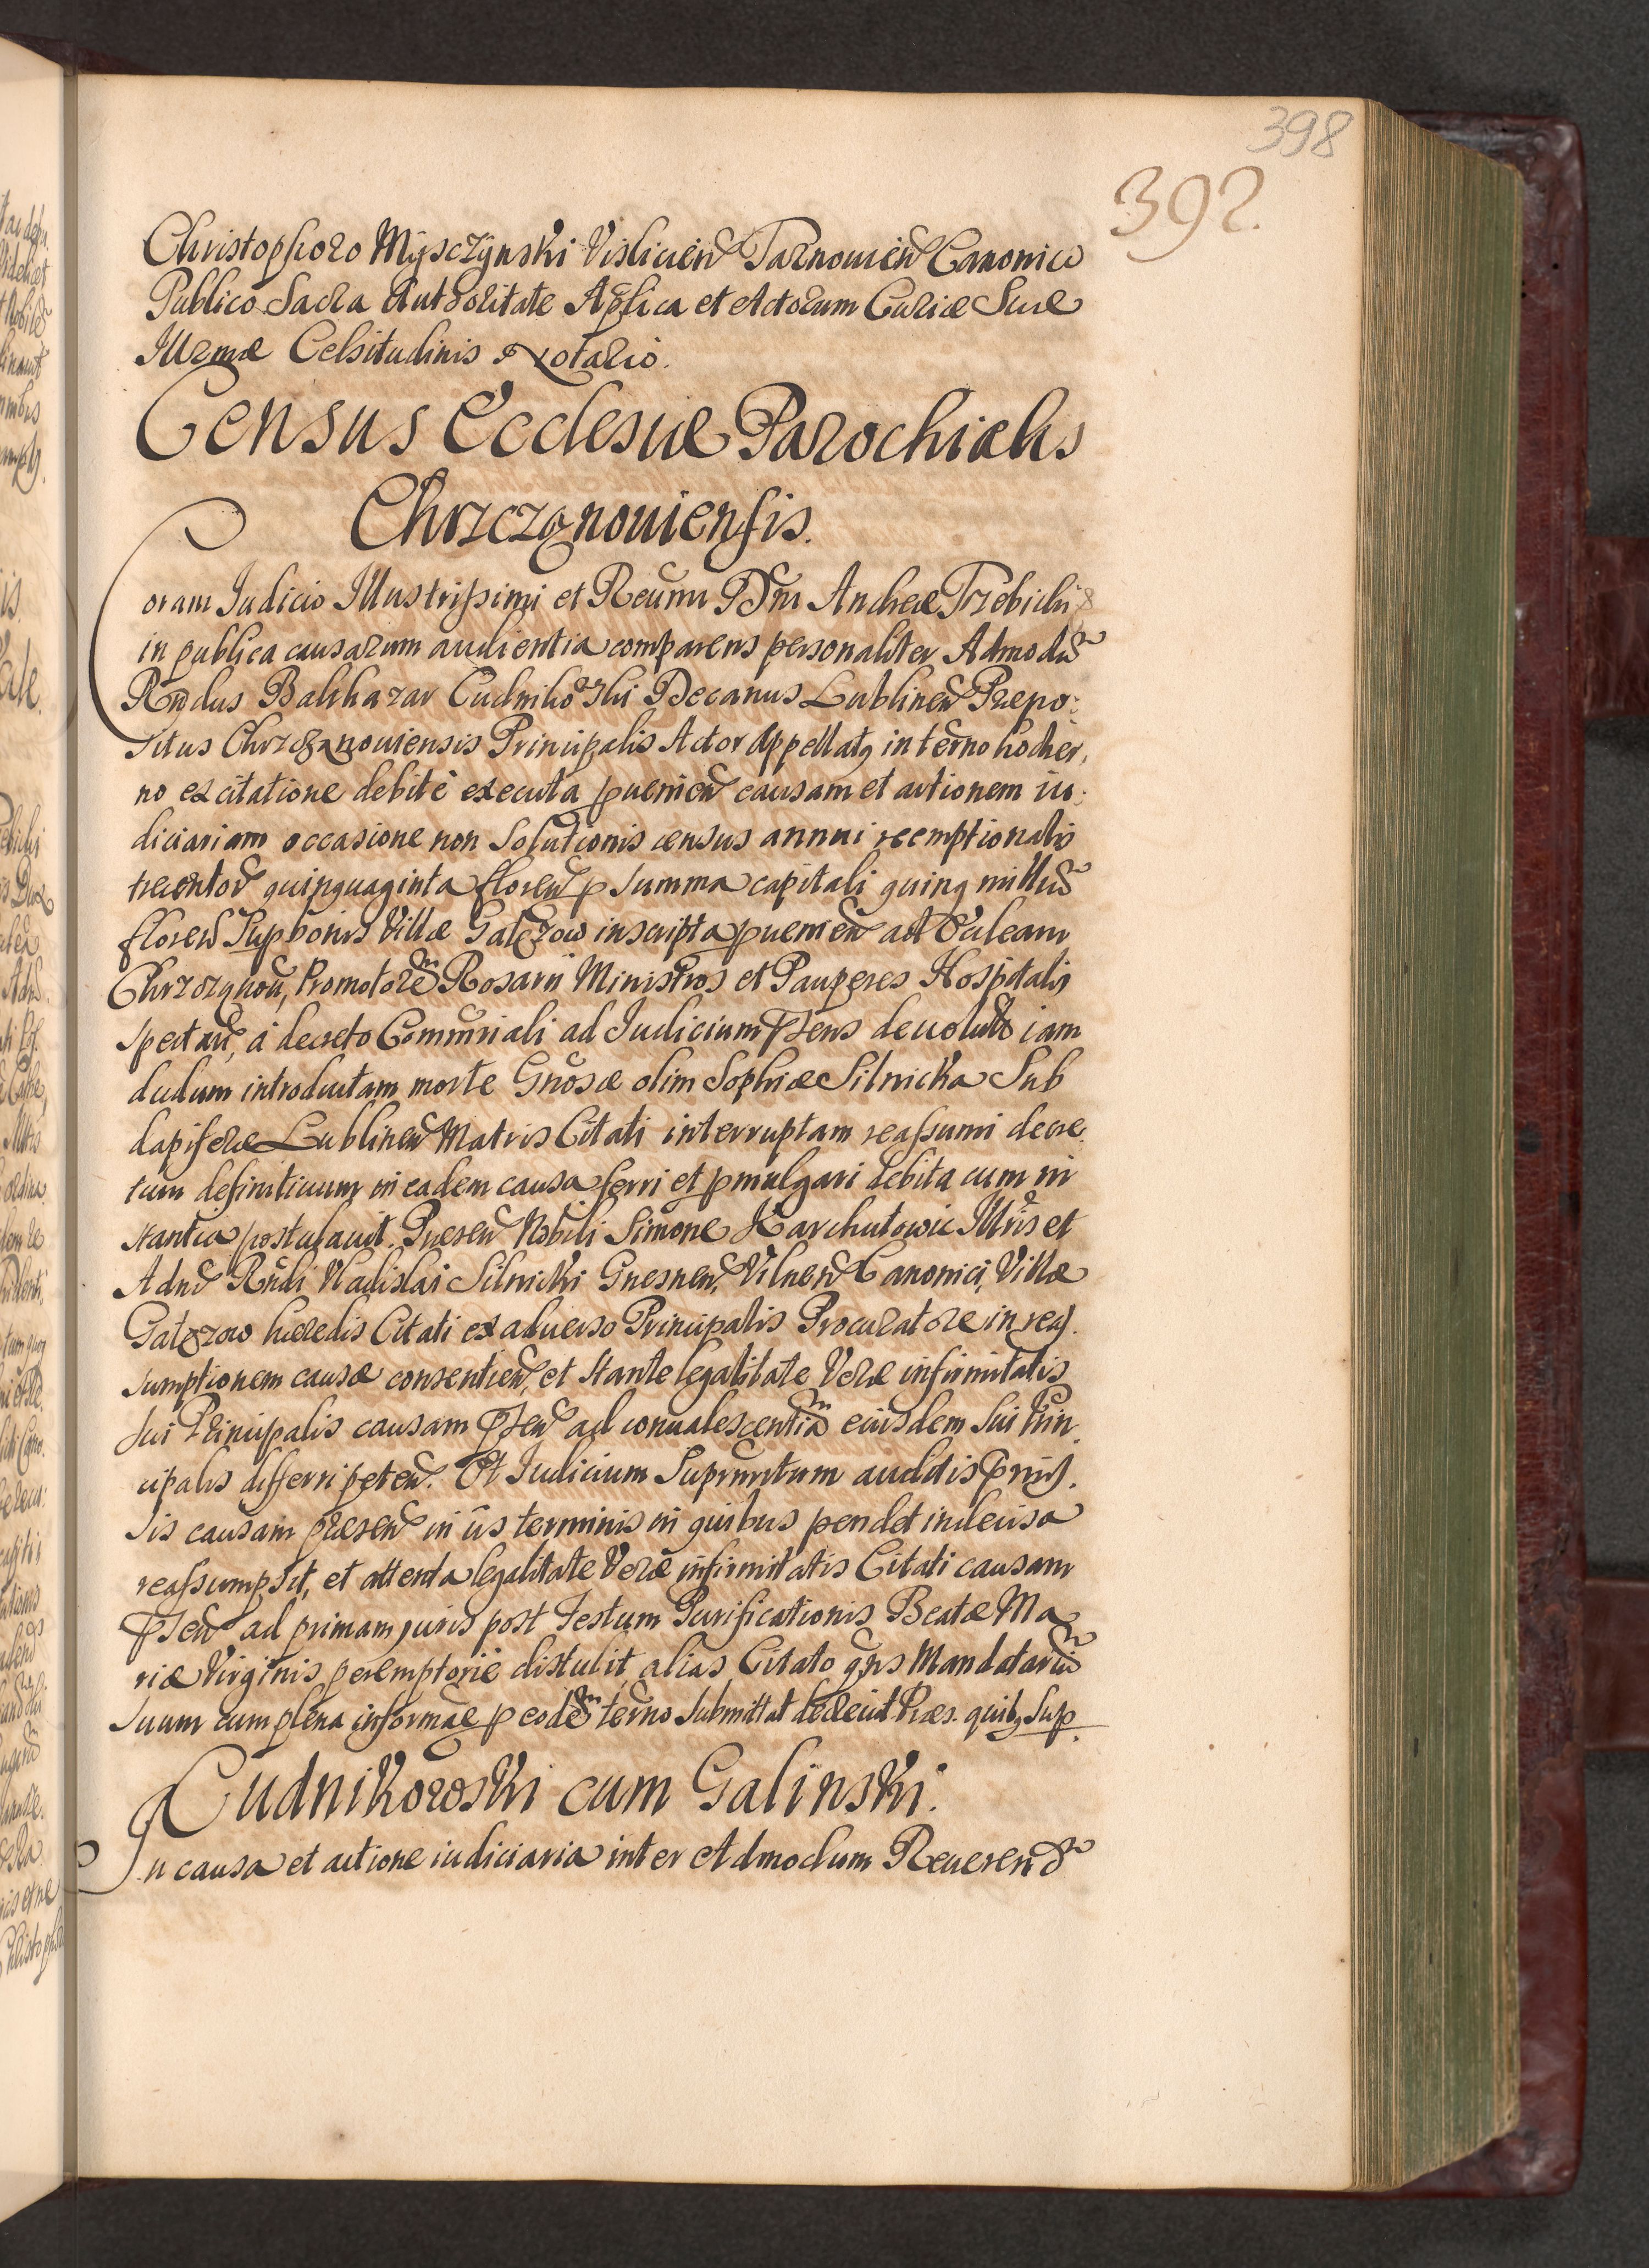 398
392.
Christophoro Mysczÿnski Visliciens Tarnouiens Canonico
Publico Sacra Authoritate Aplica et Actorum Curiæ Suæ
Illrmæ Celsitudinis Notario.
Census Ecclesiæ Parochialis
Chrzczonouiensis.
Coram Iudicio Illustrissimi et Reumi Dni Andreæ Trzebicki
in publica causarum audientia comparens personaliter Admodũ
Rndus Balthazar Cudnikowski Decanus Lublinen Præpo:
situs Chrzczonouiensis Principalis Actor Appellatq in termo hodier,
no ex citatione debitè executa puenien causam et actionem iu:
diciariam occasione non Solutionis census annui reemptionalis
trecentoru quinquaginta floren p summa capitali quinq milliũ
floren Sup bonis Villæ Gałęzow inscripta puenien ad Ecleam
Chrzczonou, Promotorẽ Rosarii Ministros et Pauperes Hospitalis
spectan, à decreto Commriali ad Iudicium Psens deuoluto iam
dudum introductam morte Gnosæ olim Sophiæ Silnicka Sub
dapiferæ Lublinen Matris Citati interruptam reassumi decre
tum definitiuum in eadem causa ferri et pmulgari debita cum in
stantia postulauit. Præsen Nobili Simone Karchutowic Illris et
Admd Rndi Vladislai Silnicki Gnesnen, Vilnen Canonici, Villæ
Gałęzow hæredis Citati ex aduerso Principalis Procuratore in reas.
sumptionem causæ consentien, et stante legalitate Veræ infirmitatis
sui Principalis causam Psen ad conualescentiã eiusdem Sui Prin
cipalis differri peten. Et Iudicium Suprmtum auditis prmis.
sis causam præsen in iis terminis in quibus pendet indecisa
reassumpsit, et attenta legalitate Veræ infirmitatis Citati causam
Psen ad primam juris post Festum Purificationis Beatæ Ma
riæ Virginis peremptoriè distulit, alias Citato qtns Mandatariũ
suum cum plena informãe p eodẽ termo submittat decreuit Præs. quibq Sup.
Cudnikowski cum Galinski.
In causa et actione iudiciaria inter Admodum Reuerend